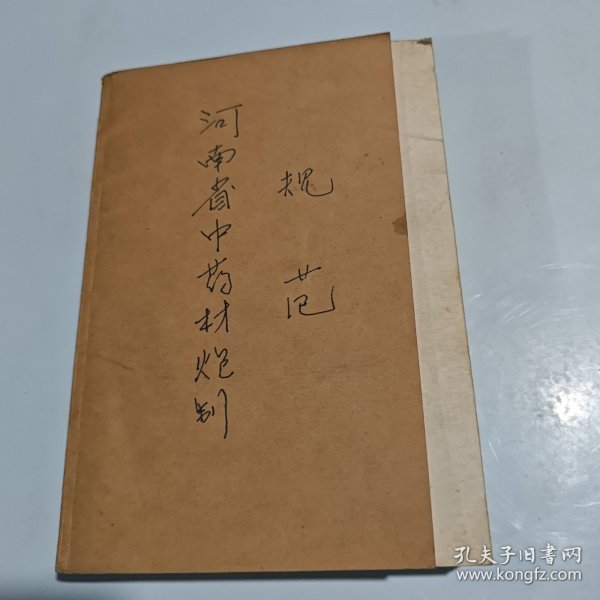 河南省中药材炮制
规范
孔夫子旧书网
www.kongfz.com